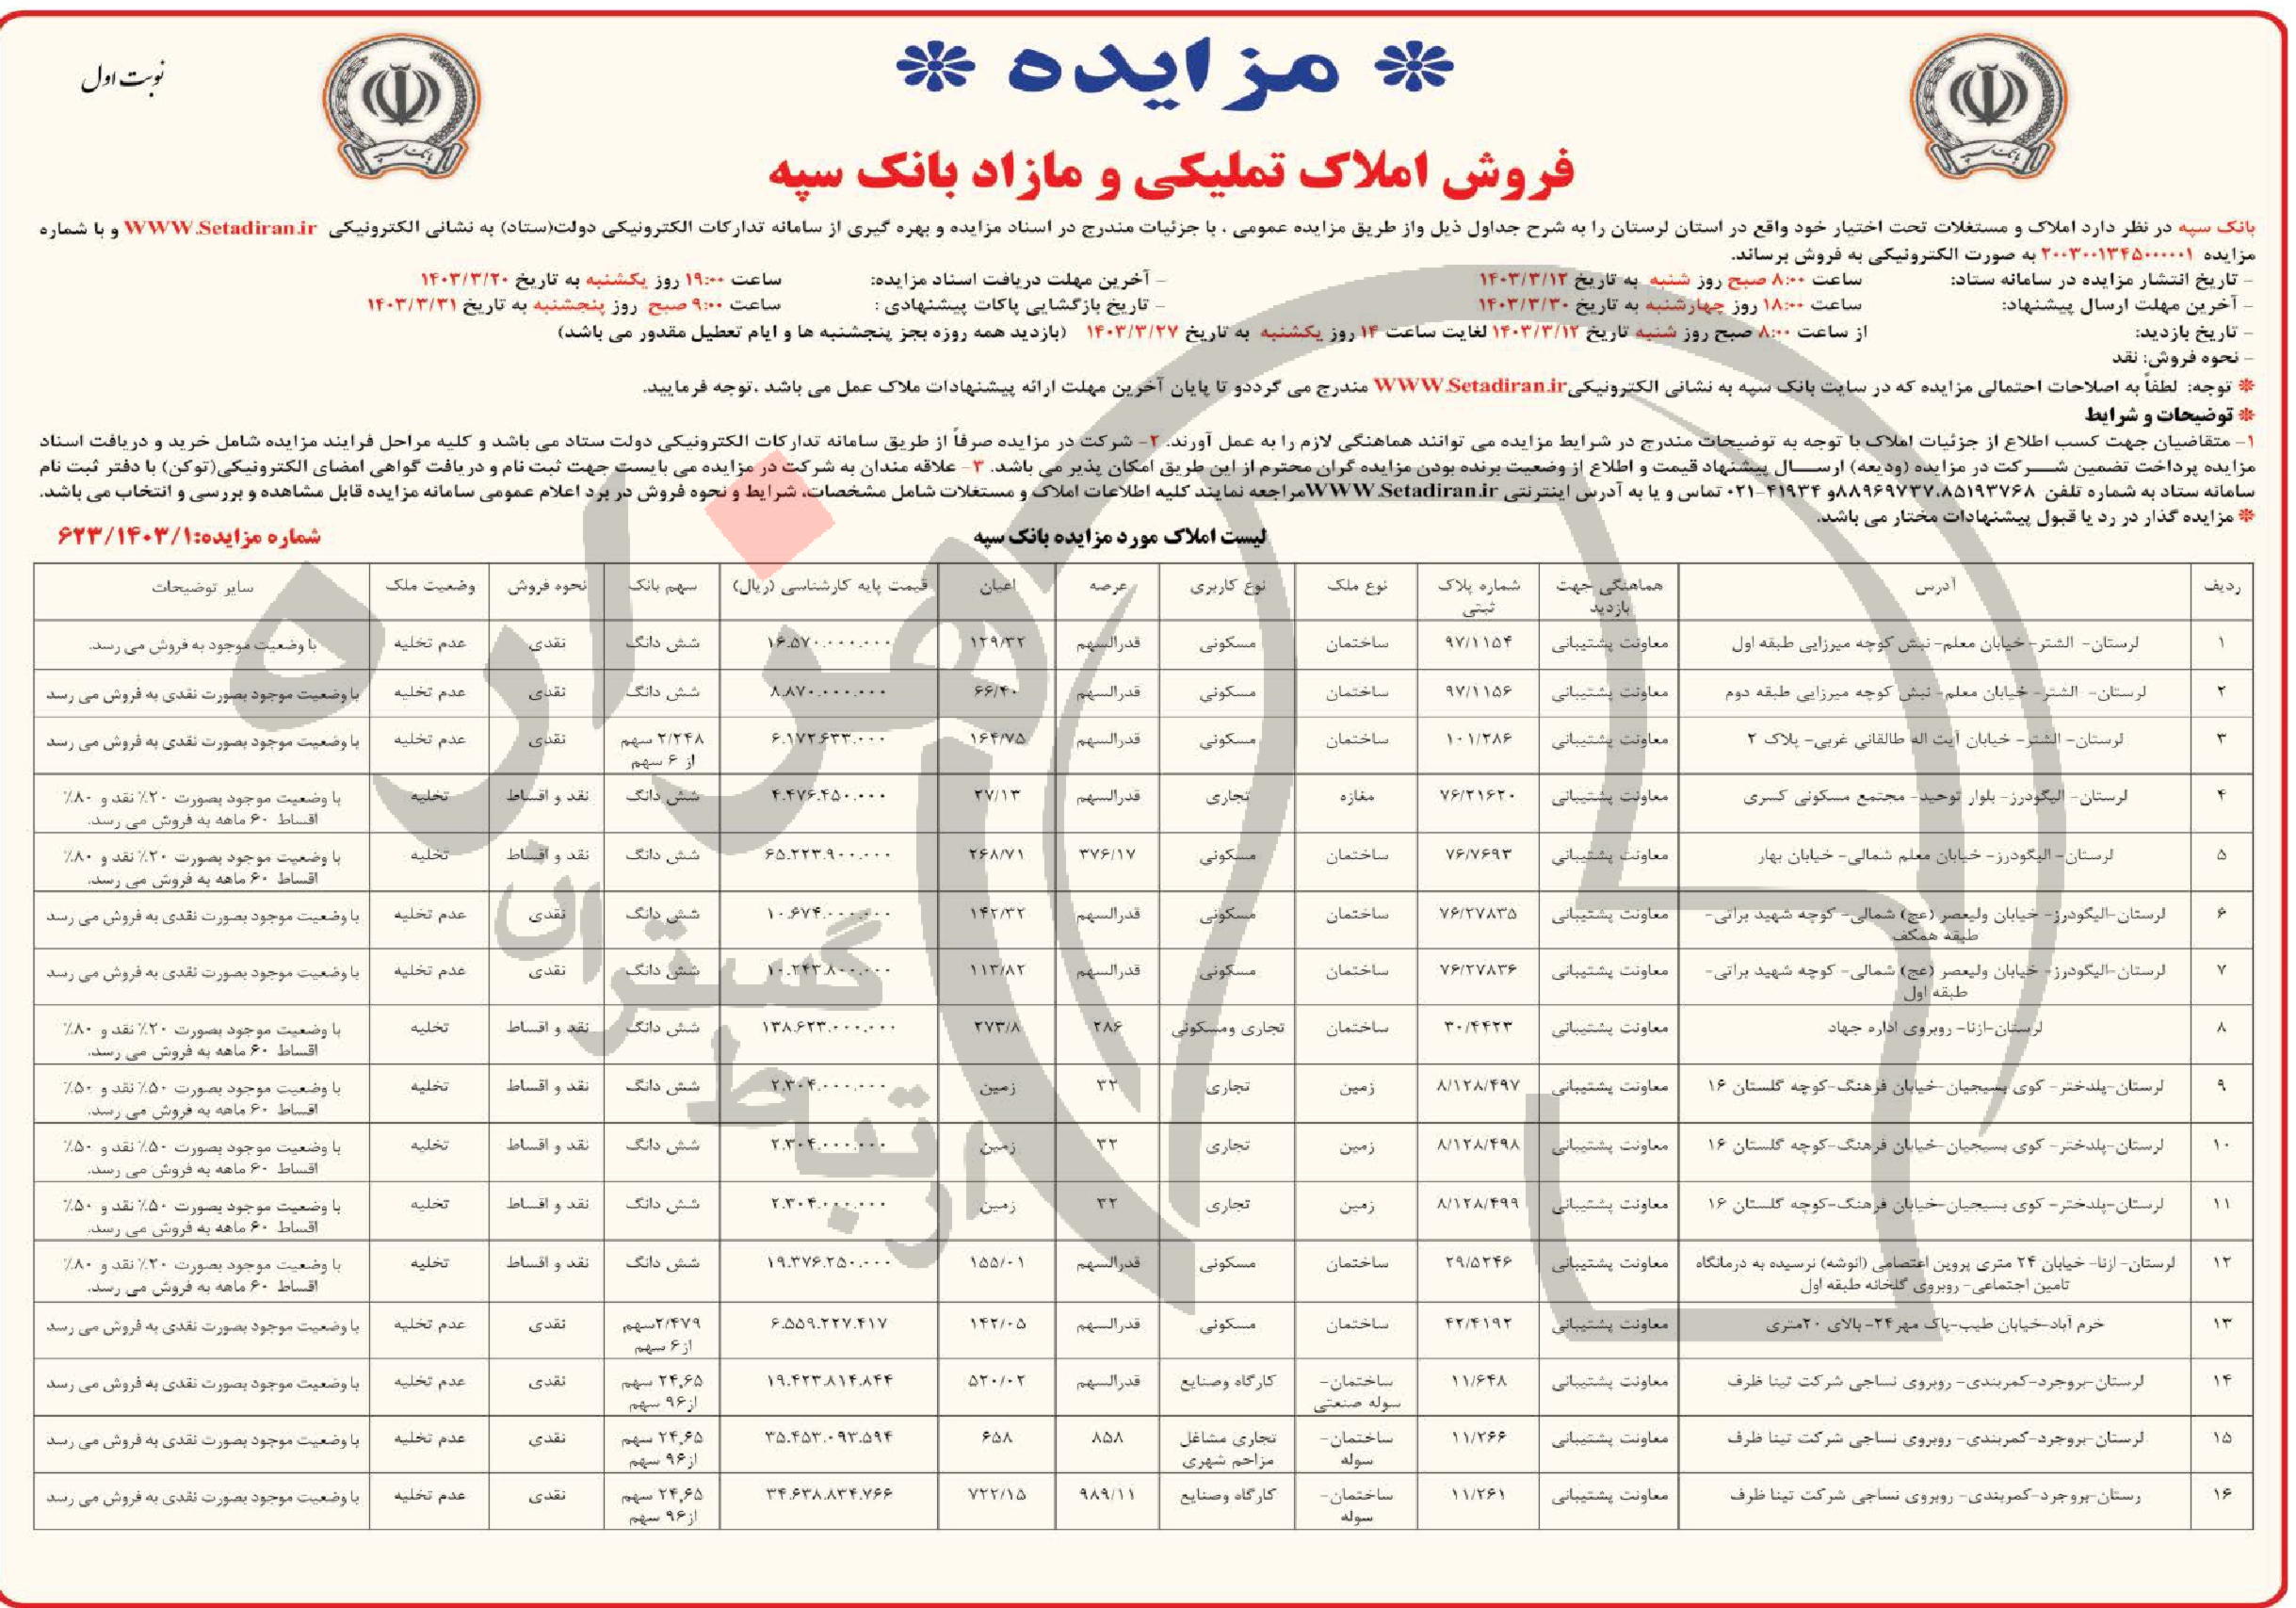 نوبت اول
* مزایده *
بانک سپه
بانک سپه
فروش املاک تملیکی و مازاد بانک سپه
بانک سپه در نظر دارد املاک و مستغلات تحت اختیار خود واقع در استان لرستان را به شرح جداول ذیل واز طریق مزایده عمومی ، با جزئیات مندرج در اسناد مزایده و بهره گیری از سامانه تدارکات الکترونیکی دولت(ستاد) به نشانی الکترونیکی WWW.Setadiran.ir و با شماره
مزایده ۲۰۰۳۰۰۱۳۴۵۰۰۰۰۰۱ به صورت الکترونیکی به فروش برساند.
- تاریخ انتشار مزایده در سامانه ستاد: ساعت ۸:۰۰ صبح روز شنبه به تاریخ ۱۴۰۳/۳/۱۲ - آخرین مهلت دریافت اسناد مزایده: ساعت ۱۹:۰۰ روز یکشنبه به تاریخ ۱۴۰۳/۳/۲۰
- آخرین مهلت ارسال پیشنهاد: ساعت ۱۸:۰۰ روز چهارشنبه به تاریخ ۱۴۰۳/۳/۳۰ - تاریخ بازگشایی پاکات پیشنهادی : ساعت ۹:۰۰ صبح روز پنجشنبه به تاریخ ۱۴۰۳/۳/۳۱
- تاریخ بازدید: از ساعت ۸:۰۰ صبح روز شنبه تاریخ ۱۴۰۳/۳/۱۲ لغایت ساعت ۱۴ روز یکشنبه به تاریخ ۱۴۰۳/۳/۲۷ (بازدید همه روزه بجز پنجشنبه ها و ایام تعطیل مقدور می باشد)
- نحوه فروش: نقد
* توجه: لطفاً به اصلاحات احتمالی مزایده که در سایت بانک سپه به نشانی الکترونیکی WWW.Setadiran.ir مندرج می گرددو تا پایان آخرین مهلت ارائه پیشنهادات ملاک عمل می باشد ،توجه فرمایید.
* توضیحات و شرایط
۱- متقاضیان جهت کسب اطلاع از جزئیات املاک با توجه به توضیحات مندرج در شرایط مزایده می توانند هماهنگی لازم را به عمل آورند. ۲- شرکت در مزایده صرفاً از طریق سامانه تدارکات الکترونیکی دولت ستاد می باشد و کلیه مراحل فرایند مزایده شامل خرید و دریافت اسناد
مزایده پرداخت تضمین شــرکت در مزایده (ودیعه) ارســال پیشنهاد قیمت و اطلاع از وضعیت برنده بودن مزایده گران محترم از این طریق امکان پذیر می باشد. ۳- علاقه مندان به شرکت در مزایده می بایست جهت ثبت نام و دریافت گواهی امضای الکترونیکی(توکن) با دفتر ثبت نام
سامانه ستاد به شماره تلفن ۸۸۹۶۹۷۳۷،۸۵۱۹۳۷۶۸و ۴۱۹۳۴-۰۲۱ تماس و یا به آدرس اینترنتی WWW.Setadiran.irمراجعه نمایند کلیه اطلاعات املاک و مستغلات شامل مشخصات، شرایط و نحوه فروش در برد اعلام عمومی سامانه مزایده قابل مشاهده و بررسی و انتخاب می باشد.
* مزایده گذار در رد یا قبول پیشنهادات مختار می باشد.
لیست املاک مورد مزایده بانک سپه
شماره مزایده:۶۲۳/۱۴۰۳/۱
ردیف آدرس هماهنگی جهت بازدید شماره پلاک ثبتی نوع ملک نوع کاربری عرصه اعیان قیمت پایه کارشناسی (ریال) سهم بانک نحوه فروش وضعیت ملک سایر توضیحات
۱ لرستان- الشتر- خیابان معلم- نبش کوچه میرزایی طبقه اول معاونت پشتیبانی ۹۷/۱۱۵۴ ساختمان مسکونی قدرالسهم ۱۲۹/۳۲ ۱۶.۵۷۰.۰۰۰.۰۰۰ شش دانگ نقدی عدم تخلیه با وضعیت موجود به فروش می رسد.
۲ لرستان- الشتر- خیابان معلم- نبش کوچه میرزایی طبقه دوم معاونت پشتیبانی ۹۷/۱۱۵۶ ساختمان مسکونی قدرالسهم ۶۶/۴۰ ۸.۸۷۰.۰۰۰.۰۰۰ شش دانگ نقدی عدم تخلیه با وضعیت موجود بصورت نقدی به فروش می رسد
۳ لرستان- الشتر- خیابان آیت اله طالقانی غربی- پلاک ۲ معاونت پشتیبانی ۱۰۱/۲۸۶ ساختمان مسکونی قدرالسهم ۱۶۴/۷۵ ۶.۱۷۲.۶۳۳.۰۰۰ ۲/۲۴۸ سهم از ۶ سهم نقدی عدم تخلیه با وضعیت موجود بصورت نقدی به فروش می رسد
۴ لرستان- الیگودرز- بلوار توحید- مجتمع مسکونی کسری معاونت پشتیبانی ۷۶/۲۱۶۲۰ مغازه تجاری قدرالسهم ۲۷/۱۳ ۴.۴۷۶.۴۵۰.۰۰۰ شش دانگ نقد و اقساط تخلیه با وضعیت موجود بصورت ۲۰٪ نقد و ۸۰٪ اقساط ۶۰ ماهه به فروش می رسد.
۵ لرستان- الیگودرز- خیابان معلم شمالی- خیابان بهار معاونت پشتیبانی ۷۶/۷۶۹۳ ساختمان مسکونی ۳۷۶/۱۷ ۲۶۸/۷۱ ۶۵.۲۲۳.۹۰۰.۰۰۰ شش دانگ نقد و اقساط تخلیه با وضعیت موجود بصورت ۲۰٪ نقد و ۸۰٪ اقساط ۶۰ ماهه به فروش می رسد.
۶ لرستان-الیگودرز- خیابان ولیعصر (عج) شمالی- کوچه شهید براتی- طبقه همکف معاونت پشتیبانی ۷۶/۲۷۸۳۵ ساختمان مسکونی قدرالسهم ۱۴۲/۳۲ ۱۰.۶۷۴.۰۰۰.۰۰۰ شش دانگ نقدی عدم تخلیه با وضعیت موجود بصورت نقدی به فروش می رسد
۷ لرستان-الیگودرز- خیابان ولیعصر (عج) شمالی- کوچه شهید براتی- طبقه اول معاونت پشتیبانی ۷۶/۲۷۸۳۶ ساختمان مسکونی قدرالسهم ۱۱۳/۸۲ ۱۰.۲۴۳.۸۰۰.۰۰۰ شش دانگ نقدی عدم تخلیه با وضعیت موجود بصورت نقدی به فروش می رسد
۸ لرستان-ازنا- روبروی اداره جهاد معاونت پشتیبانی ۳۰/۴۴۲۳ ساختمان تجاری ومسکونی ۲۸۶ ۲۷۳/۸ ۱۳۸.۶۲۳.۰۰۰.۰۰۰ شش دانگ نقد و اقساط تخلیه با وضعیت موجود بصورت ۲۰٪ نقد و ۸۰٪ اقساط ۶۰ ماهه به فروش می رسد.
۹ لرستان-پلدختر- کوی بسیجیان-خیابان فرهنگ-کوچه گلستان ۱۶ معاونت پشتیبانی ۸/۱۲۸/۴۹۷ زمین تجاری ۳۲ زمین ۲.۳۰۴.۰۰۰.۰۰۰ شش دانگ نقد و اقساط تخلیه با وضعیت موجود بصورت ۵۰٪ نقد و ۵۰٪ اقساط ۶۰ ماهه به فروش می رسد.
۱۰ لرستان-پلدختر- کوی بسیجیان-خیابان فرهنگ-کوچه گلستان ۱۶ معاونت پشتیبانی ۸/۱۲۸/۴۹۸ زمین تجاری ۳۲ زمین ۲.۳۰۴.۰۰۰.۰۰۰ شش دانگ نقد و اقساط تخلیه با وضعیت موجود بصورت ۵۰٪ نقد و ۵۰٪ اقساط ۶۰ ماهه به فروش می رسد.
۱۱ لرستان-پلدختر- کوی بسیجیان-خیابان فرهنگ-کوچه گلستان ۱۶ معاونت پشتیبانی ۸/۱۲۸/۴۹۹ زمین تجاری ۳۲ زمین ۲.۳۰۴.۰۰۰.۰۰۰ شش دانگ نقد و اقساط تخلیه با وضعیت موجود بصورت ۵۰٪ نقد و ۵۰٪ اقساط ۶۰ ماهه به فروش می رسد.
۱۲ لرستان- ازنا- خیابان ۲۴ متری پروین اعتصامی (انوشه) نرسیده به درمانگاه تامین اجتماعی- روبروی گلخانه طبقه اول معاونت پشتیبانی ۲۹/۵۲۴۶ ساختمان مسکونی قدرالسهم ۱۵۵/۰۱ ۱۹.۳۷۶.۲۵۰.۰۰۰ شش دانگ نقد و اقساط تخلیه با وضعیت موجود بصورت ۲۰٪ نقد و ۸۰٪ اقساط ۶۰ ماهه به فروش می رسد.
۱۳ خرم آباد-خیابان طیب-پاک مهر۲۴- بالای ۲۰متری معاونت پشتیبانی ۴۲/۴۱۹۲ ساختمان مسکونی قدرالسهم ۱۴۲/۰۵ ۶.۵۵۹.۲۲۷.۴۱۷ ۲/۴۷۹سهم از۶ سهم نقدی عدم تخلیه با وضعیت موجود بصورت نقدی به فروش می رسد
۱۴ لرستان-بروجرد-کمربندی- روبروی نساجی شرکت تینا ظرف معاونت پشتیبانی ۱۱/۶۴۸ ساختمان- سوله صنعتی کارگاه وصنایع قدرالسهم ۵۲۰/۰۲ ۱۹.۴۲۳.۸۱۴.۸۴۴ ۲۴,۶۵ سهم از۹۶ سهم نقدی عدم تخلیه با وضعیت موجود بصورت نقدی به فروش می رسد
۱۵ لرستان-بروجرد-کمربندی- روبروی نساجی شرکت تینا ظرف معاونت پشتیبانی ۱۱/۲۶۶ ساختمان- سوله تجاری مشاغل مزاحم شهری ۸۵۸ ۶۵۸ ۳۵.۴۵۳.۰۹۳.۵۹۴ ۲۴,۶۵ سهم از۹۶ سهم نقدی عدم تخلیه با وضعیت موجود بصورت نقدی به فروش می رسد
۱۶ رستان-بروجرد-کمربندی- روبروی نساجی شرکت تینا ظرف معاونت پشتیبانی ۱۱/۲۶۱ ساختمان- سوله کارگاه وصنایع ۹۸۹/۱۱ ۷۲۲/۱۵ ۳۴.۶۳۸.۸۳۴.۷۶۶ ۲۴,۶۵ سهم از۹۶ سهم نقدی عدم تخلیه با وضعیت موجود بصورت نقدی به فروش می رسد
هزاره
گستران
ارتباط